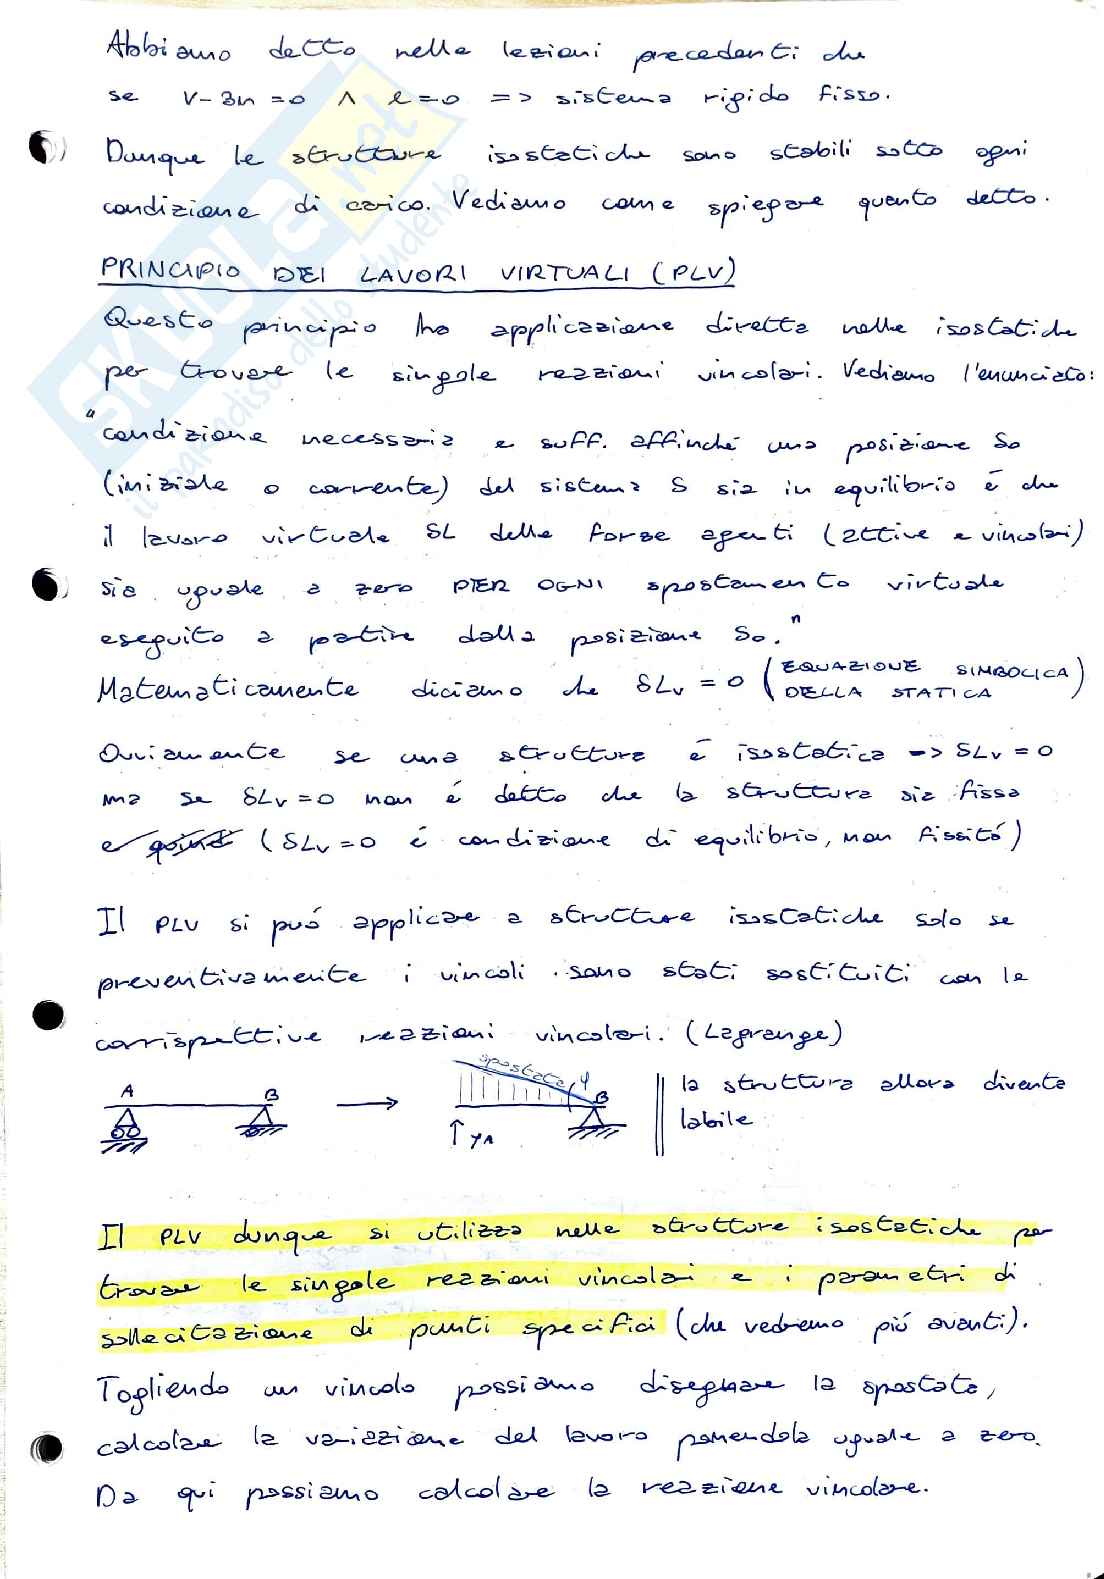 Abbiamo detto nelle lezioni precedenti che
se V-3n=0 ∧ l=0 => sistema rigido fisso.
Dunque le strutture isostatiche sono stabili sotto ogni
condizione di carico. Vediamo come spiegare quanto detto.
PRINCIPIO DEI LAVORI VIRTUALI (PLV)
Questo principio ha applicazione diretta nelle isostatiche
per trovare le singole reazioni vincolari. Vediamo l'enunciato:
"condizione necessaria e suff. affinché una posizione So
(iniziale o corrente) del sistema S sia in equilibrio é che
il lavoro virtuale δL delle forze agenti (attive e vincolari)
sia uguale a zero PER OGNI spostamento virtuale
eseguito a partire dalla posizione So."
Matematicamente diciamo che δLv = 0 (EQUAZIONE SIMBOLICA
DELLA STATICA)
Ovviamente se una struttura é isostatica -> δLv = 0
ma se δLv=0 non é detto che la struttura sia fissa
e (δLv=0 é condizione di equilibrio, non fissitá)
Il PLV si puó applicare a strutture isostatiche solo se
preventivamente i vincoli sono stati sostituiti con le
corrispettive reazioni vincolari. (Lagrange)
A B
spostata φ B
YA
la struttura allora diventa
labile
Il PLV dunque si utilizza nelle strutture isostatiche per
trovare le singole reazioni vincolari e i parametri di
sollecitazione di punti specifici (che vedremo piú avanti).
Togliendo un vincolo possiamo disegnare la spostata,
calcolare la variazione del lavoro ponendola uguale a zero.
Da qui possiamo calcolare la reazione vincolare.
SKUOLA.net
il paradiso dello studente